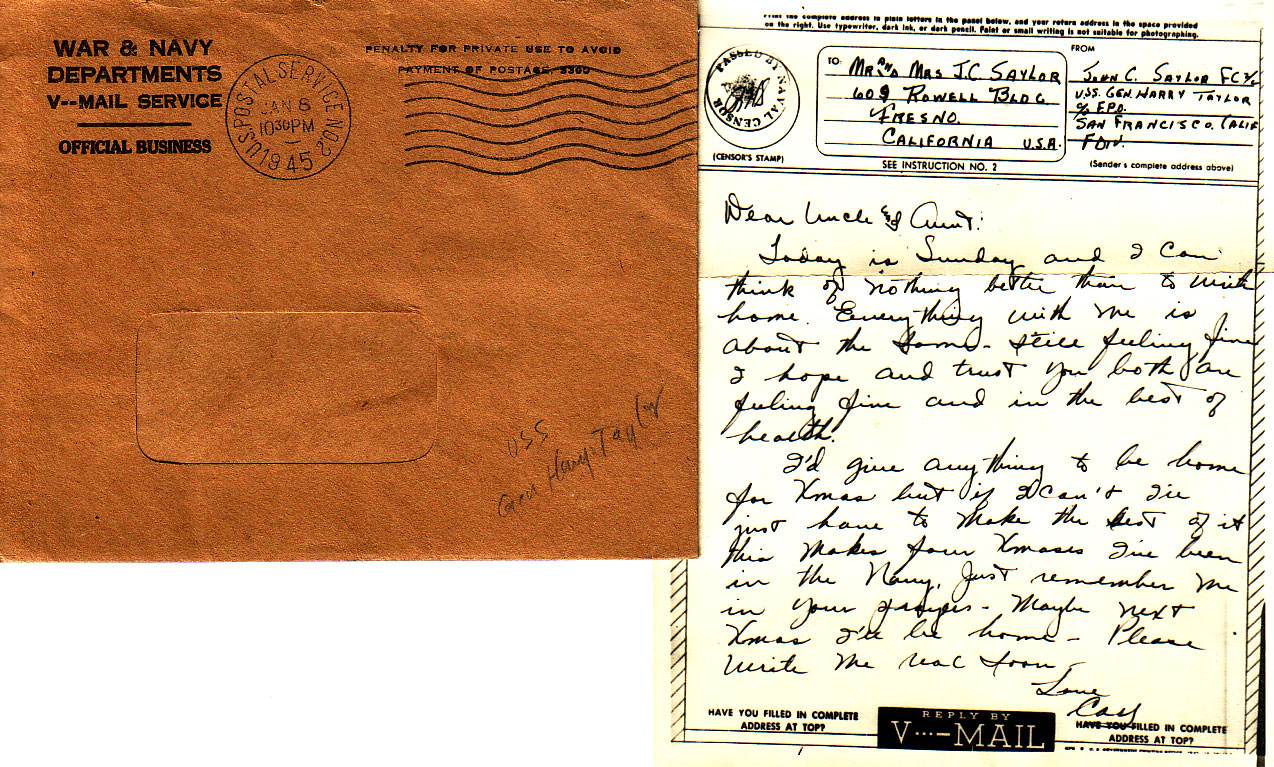 WAR & NAVY
DEPARTMENTS
V---MAIL SERVICE
OFFICIAL BUSINESS
JAN 8
1030PM
1945
PENALTY FOR PRIVATE USE TO AVOID
PAYMENT OF POSTAGE, $300
USS
Gen Harry Taylor
Print the complete address in plain letters in the panel below, and your return address in the space provided
on the right. Use typewriter, dark ink, or dark pencil. Faint or small writing is not suitable for photographing.
PASSED BY NAVAL CENSOR
(CENSOR'S STAMP)
TO:
MR AND MRS J.C. SAYLOR
609 ROWELL BLDG
FRESNO.
CALIFORNIA U.S.A.
SEE INSTRUCTION NO. 2
FROM
JOHN C. SAYLOR FC
USS. GEN. HARRY TAYLOR
% F.P.O.
SAN FRANCISCO. CALIF
F DIV.
(Sender's complete address above)
Dear Uncle & Aunt:
Today is Sunday and I can
think of nothing better than to write
home. Everything with me is
about the same - still feeling fine
I hope and trust you both are
feeling fine and in the best of
health.
I'd give anything to be home
for Xmas but if I can't I'll
just have to make the best of it
this makes four Xmases I've been
in the Navy. Just remember me
in your prayers - Maybe next
Xmas I'll be home - Please
write me real soon
Love
HAVE YOU FILLED IN COMPLETE
ADDRESS AT TOP?
REPLY BY
V···—MAIL
HAVE YOU FILLED IN COMPLETE
ADDRESS AT TOP?